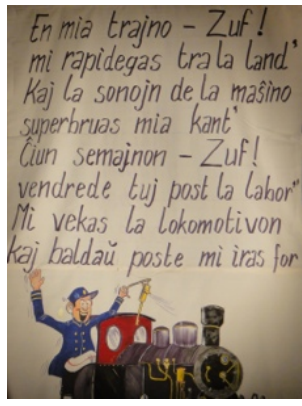 En mia trajno – Zuf!
mi rapidegas tra la land'
Kaj la sonojn de la maŝino
superbruas mia kant'
Ĉiun semajnon – Zuf!
vendrede tuj post la labor'
Mi vekas la lokomotivon
kaj baldaŭ poste mi iras for